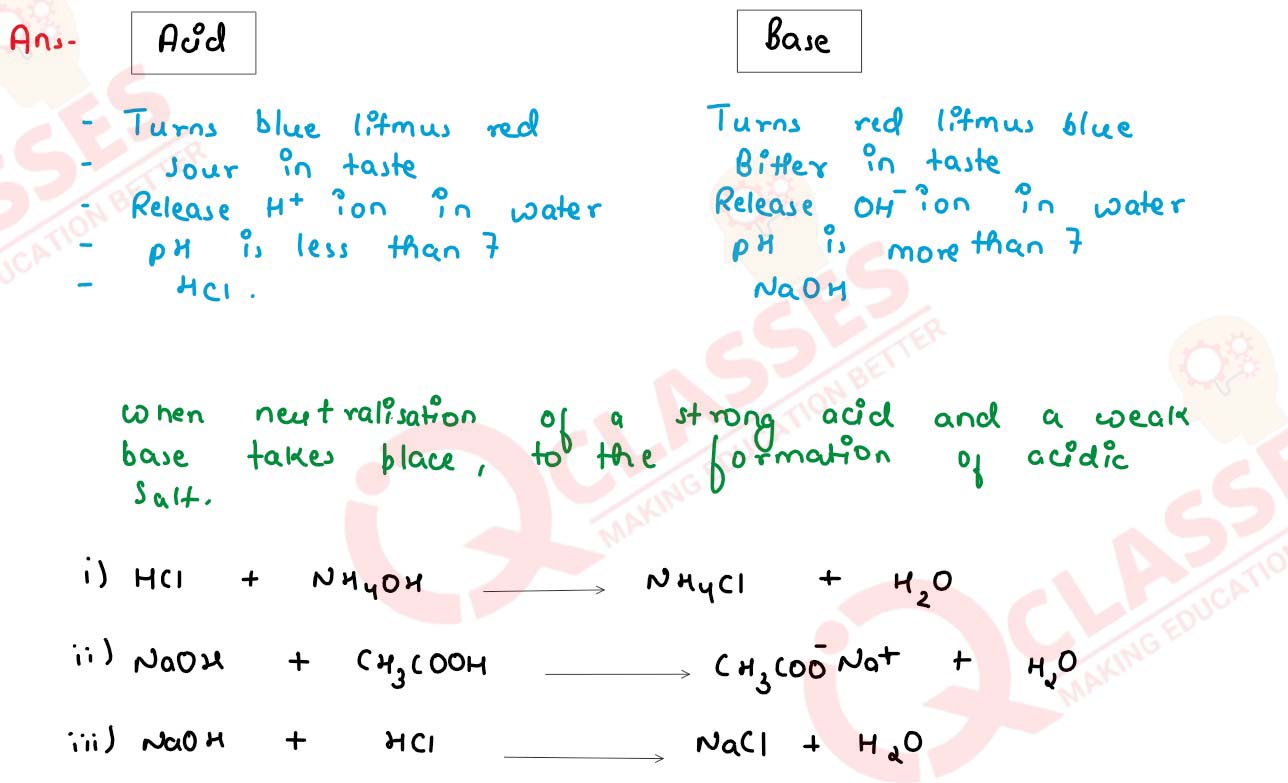 Ans-
Acid
Base
- Turns blue litmus red
Turns red litmus blue
- Sour in taste
Bitter in taste
- Release H⁺ ion in water
Release OH⁻ ion in water
- pH is less than 7
pH is more than 7
- HCl.
NaOH
When neutralisation of a strong acid and a weak
base takes place, to the formation of acidic
salt.
i) HCl + NH₄OH ⟶ NH₄Cl + H₂O
ii) NaOH + CH₃COOH ⟶ CH₃COO⁻Na⁺ + H₂O
iii) NaOH + HCl ⟶ NaCl + H₂O
ASSES
UCATION BETTER
IQ CLASSES
MAKING EDUCATION BETTER
IQ CLASSE
MAKING EDUCATION